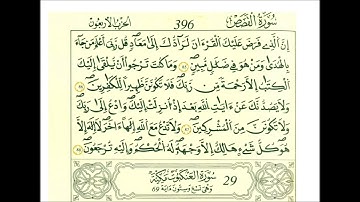 سورة القصص 396 الحزب الأربعون
إِنَّ الَّذِي فَرَضَ عَلَيْكَ الْقُرْءَانَ لَرَآدُّكَ إِلَىٰ مَعَادٍ قُل رَّبِّي أَعْلَمُ مَن جَآءَ
بِالْهُدَىٰ وَمَنْ هُوَ فِي ضَلَٰلٍ مُّبِينٍ وَمَا كُنتَ تَرْجُوٓا۟ أَن يُلْقَىٰٓ إِلَيْكَ
الْكِتَٰبُ إِلَّا رَحْمَةً مِّن رَّبِّكَ فَلَا تَكُونَنَّ ظَهِيرًا لِّلْكَٰفِرِينَ
وَلَا يَصُدُّنَّكَ عَنْ ءَايَٰتِ اللَّهِ بَعْدَ إِذْ أُنزِلَتْ إِلَيْكَ وَادْعُ إِلَىٰ رَبِّكَ
وَلَا تَكُونَنَّ مِنَ الْمُشْرِكِينَ وَلَا تَدْعُ مَعَ اللَّهِ إِلَٰهًا ءَاخَرَ لَآ إِلَٰهَ إِلَّا
هُوَ كُلُّ شَيْءٍ هَالِكٌ إِلَّا وَجْهَهُۥ لَهُ الْحُكْمُ وَإِلَيْهِ تُرْجَعُونَ
سورة العنكبوت مكية 29
وهي تسع وستون ءاية 69